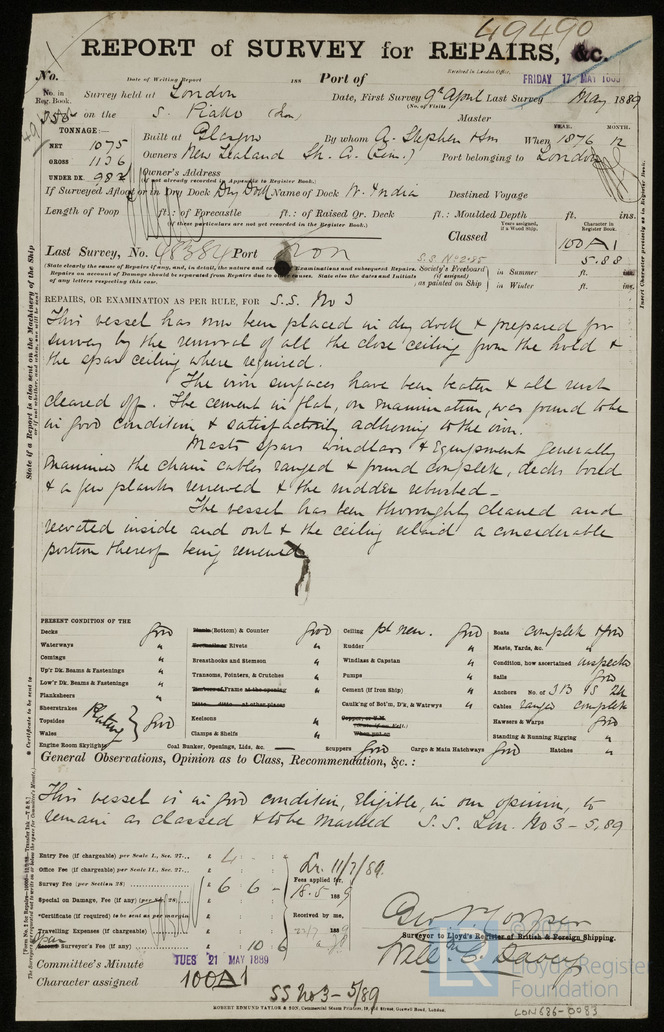 49490
REPORT of SURVEY for REPAIRS, &c.
No. Date of Writing Report 188 Port of Received in London Office, FRIDAY 17 MAY 1889
No. in Reg. Book. Survey held at London Date, First Survey 9th April Last Survey May 1889
(No. of Visits)
on the S. Piako (Iron) Master
TONNAGE:—
NET 1075
GROSS 1136
UNDER DK. 982
Built at Glasgow By whom A. Stephen & Sn When YEAR. 1876 MONTH. 12
Owners New Zealand Sh. Co. (Lim.) Port belonging to London
Owner's Address
(if not already recorded in Appendix to Register Book.)
If Surveyed Afloat or in Dry Dock Dry Dock Name of Dock W. India Destined Voyage
Length of Poop ft.: of Forecastle ft.: of Raised Qr. Deck ft.: Moulded Depth ft. ins.
(if these particulars are not yet recorded in the Register Book.)
Years assigned, if a Wood Ship.
Character in Register Book.
Classed 100A1
5.88
Last Survey, No. Port Iron
S.S. No 2.85
(State clearly the cause of Repairs if any, and, in detail, the nature and Examinations and subsequent Repairs.
Repairs on account of Damage should be separated from Repairs due to causes. State also the dates and Initials
of any letters respecting this case.)
Society's Freeboard (if assigned) as painted on Ship
in Summer ft. ins.
in Winter ft. ins.
Insert Character precisely as in Register Book.
State if a Report is also sent on the Machinery of the Ship
REPAIRS, OR EXAMINATION AS PER RULE, FOR S.S. No 3
This vessel has now been placed in dry dock & prepared for
survey by the removal of all the close ceiling from the hold &
the spar ceiling where required.
The iron surfaces have been beaten & all rust
cleared off. The cement in flat, on examination, was found to be
in good condition & satisfactorily adhering to the iron.
Masts spars windlass & Equipment generally
examined the chain cables ranged & found complete, decks bored
& a few planks renewed & the rudder rebushed—
The vessel has been thoroughly cleaned and
recoated inside and out & the ceiling relaid a considerable
portion thereof being renewed
PRESENT CONDITION OF THE
Decks Good
Waterways "
Comings "
Up'r Dk. Beams & Fastenings "
Low'r Dk. Beams & Fastenings "
Planksheers "
Sheerstrakes
Topsides Plating Good
Wales
Engine Room Skylights
(Bottom) & Counter Good
Rivets "
Breasthooks and Stemson "
Transoms, Pointers, & Crutches "
Frame at the opening "
Ditto ditto at other places
Keelsons "
Clamps & Shelfs "
Coal Bunker, Openings, Lids, &c. —
Ceiling pt new. Good
Rudder "
Windlass & Capstan "
Pumps "
Cement (if Iron Ship) "
Caulk'ng of Bot'm, D'k, & Watrwys "
Scuppers Good
Cargo & Main Hatchways Good
Boats complete & Good
Masts, Yards, &c. "
Condition, how ascertained inspected
Sails Good
Anchors No. of 3B 1S 2K
Cables ranged complete
Hawsers & Warps Good
Standing & Running Rigging "
Hatches "
General Observations, Opinion as to Class, Recommendation, &c.:
This vessel is in good condition, Eligible, in our opinion, to
remain as classed & to be marked S.S. Lon. No 3 – 5,89
Entry Fee (if chargeable) per Scale I., Sec. 27... £ 4 . :
Office Fee (if chargeable) per Scale II., Sec. 27... £ : :
Survey Fee (per Section 28) £ 6 : 6 –
Special on Damage, Fee (if any) (per Sec. 28) £ : :
*Certificate (if required) to be sent as per margin
Travelling Expenses (if chargeable) £ : :
Surveyor's Fee (if any) £ : 10 6
Fees applied for, 18.5 1889
Received by me,
Surveyor to Lloyd's Register of British & Foreign Shipping.
Committee's Minute TUES 21 MAY 1889
Character assigned 100A1
SS No 3–5/89
ROBERT EDMUND TAYLOR & SON, Commercial Steam Printers, 19, Old Street, Goswell Road, London.
LR
Lloyd's Register
Foundation
LON686-0083